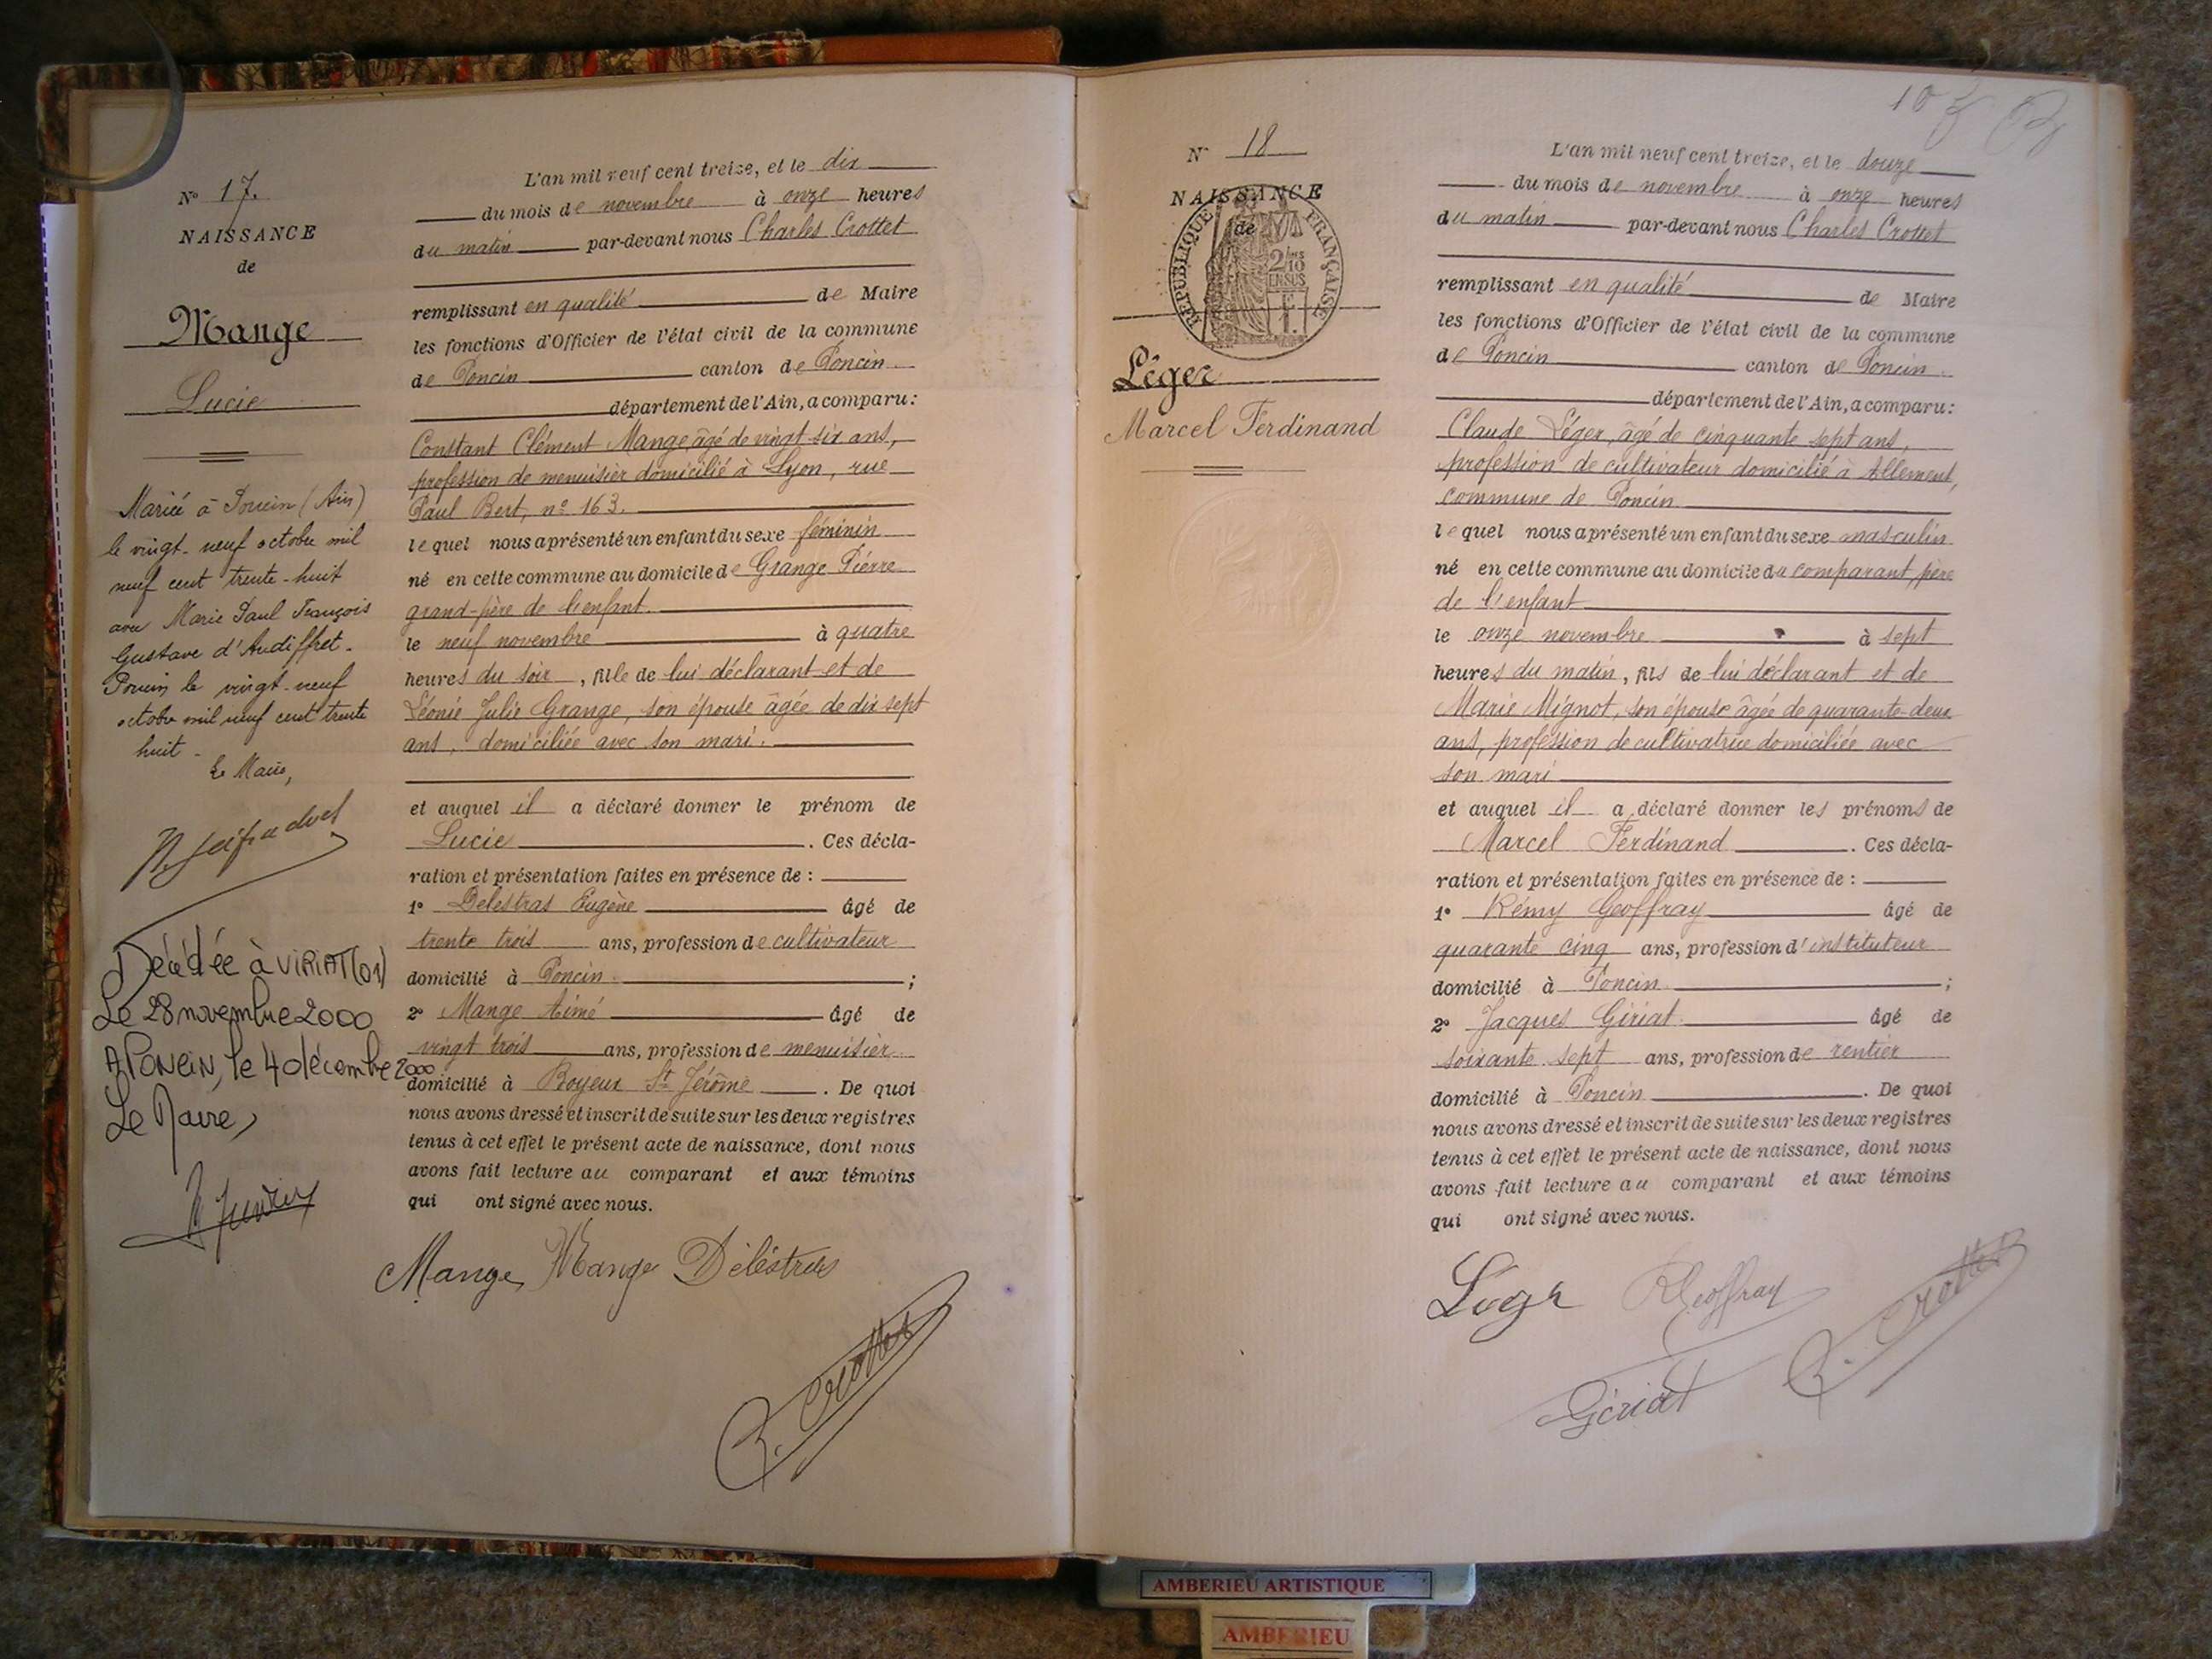 N° 17.
NAISSANCE
de
Mange
Lucie
Mariée à Poncin (Ain)
le vingt-neuf octobre mil
neuf cent trente-huit
avec Marie Paul François
Gustave d'Audiffret.
Poncin le vingt-neuf
octobre mil neuf cent trente
huit -
Le Maire,
Décédée à VIRIAT (01)
Le 28 novembre 2000
A PONCIN, le 4 décembre 2000
Le Maire,
L'an mil neuf cent treize, et le dix
du mois de novembre à onze heures
du matin par-devant nous Charles Crottet
remplissant en qualité de Maire
les fonctions d'Officier de l'état civil de la commune
de Poncin canton de Poncin
département de l'Ain, a comparu:
Constant Clément Mange, âgé de vingt six ans,
profession de menuisier domicilié à Lyon, rue
Paul Bert, n° 163.
lequel nous a présenté un enfant du sexe féminin
né en cette commune au domicile de Grange Pierre
grand-père de l'enfant.
le neuf novembre à quatre
heures du soir, fille de lui déclarant et de
Léonie Julie Grange, son épouse âgée de dix sept
ans, domiciliée avec son mari.
et auquel il a déclaré donner le prénom de
Lucie. Ces décla-
ration et présentation faites en présence de :
1° Delestras Eugène âgé de
trente trois ans, profession de cultivateur
domicilié à Poncin ;
2° Mange Aimé âgé de
vingt trois ans, profession de menuisier
domicilié à Boyeux St Jérôme. De quoi
nous avons dressé et inscrit de suite sur les deux registres
tenus à cet effet le présent acte de naissance, dont nous
avons fait lecture au comparant et aux témoins
qui ont signé avec nous.
Mange Mange Délestras
C. Crottet
103
N° 18
NAISSANCE
de
RÉPUBLIQUE FRANÇAISE
2/10
EN SUS
1 F.
Léger
Marcel Ferdinand
L'an mil neuf cent treize, et le douze
du mois de novembre à onze heures
du matin par-devant nous Charles Crottet
remplissant en qualité de Maire
les fonctions d'Officier de l'état civil de la commune
de Poncin canton de Poncin
département de l'Ain, a comparu:
Claude Léger, âgé de cinquante sept ans,
profession de cultivateur domicilié à Allement,
commune de Poncin
lequel nous a présenté un enfant du sexe masculin
né en cette commune au domicile du comparant, père
de l'enfant
le onze novembre à sept
heures du matin, fils de lui déclarant et de
Marie Mignot, son épouse âgée de quarante-deux
ans, profession de cultivatrice domiciliée avec
son mari
et auquel il a déclaré donner les prénoms de
Marcel Ferdinand. Ces décla-
ration et présentation faites en présence de :
1° Rémy Geoffray âgé de
quarante cinq ans, profession d'instituteur
domicilié à Poncin ;
2° Jacques Giriat âgé de
soixante sept ans, profession de rentier
domicilié à Poncin. De quoi
nous avons dressé et inscrit de suite sur les deux registres
tenus à cet effet le présent acte de naissance, dont nous
avons fait lecture au comparant et aux témoins
qui ont signé avec nous.
Léger R Geoffray
C. Crottet
Giriat
AMBERIEU ARTISTIQUE
AMBERIEU